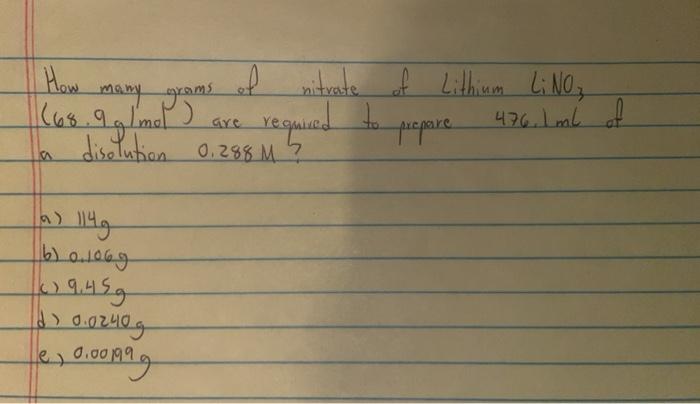 How many grams of nitrate of Lithium LiNO₃
(68.9 g/mol) are required to prepare 476.1 mL of
a disolution 0.288 M ?
a) 114g
b) 0.106g
c) 9.45g
d) 0.0240g
e) 0.00199g